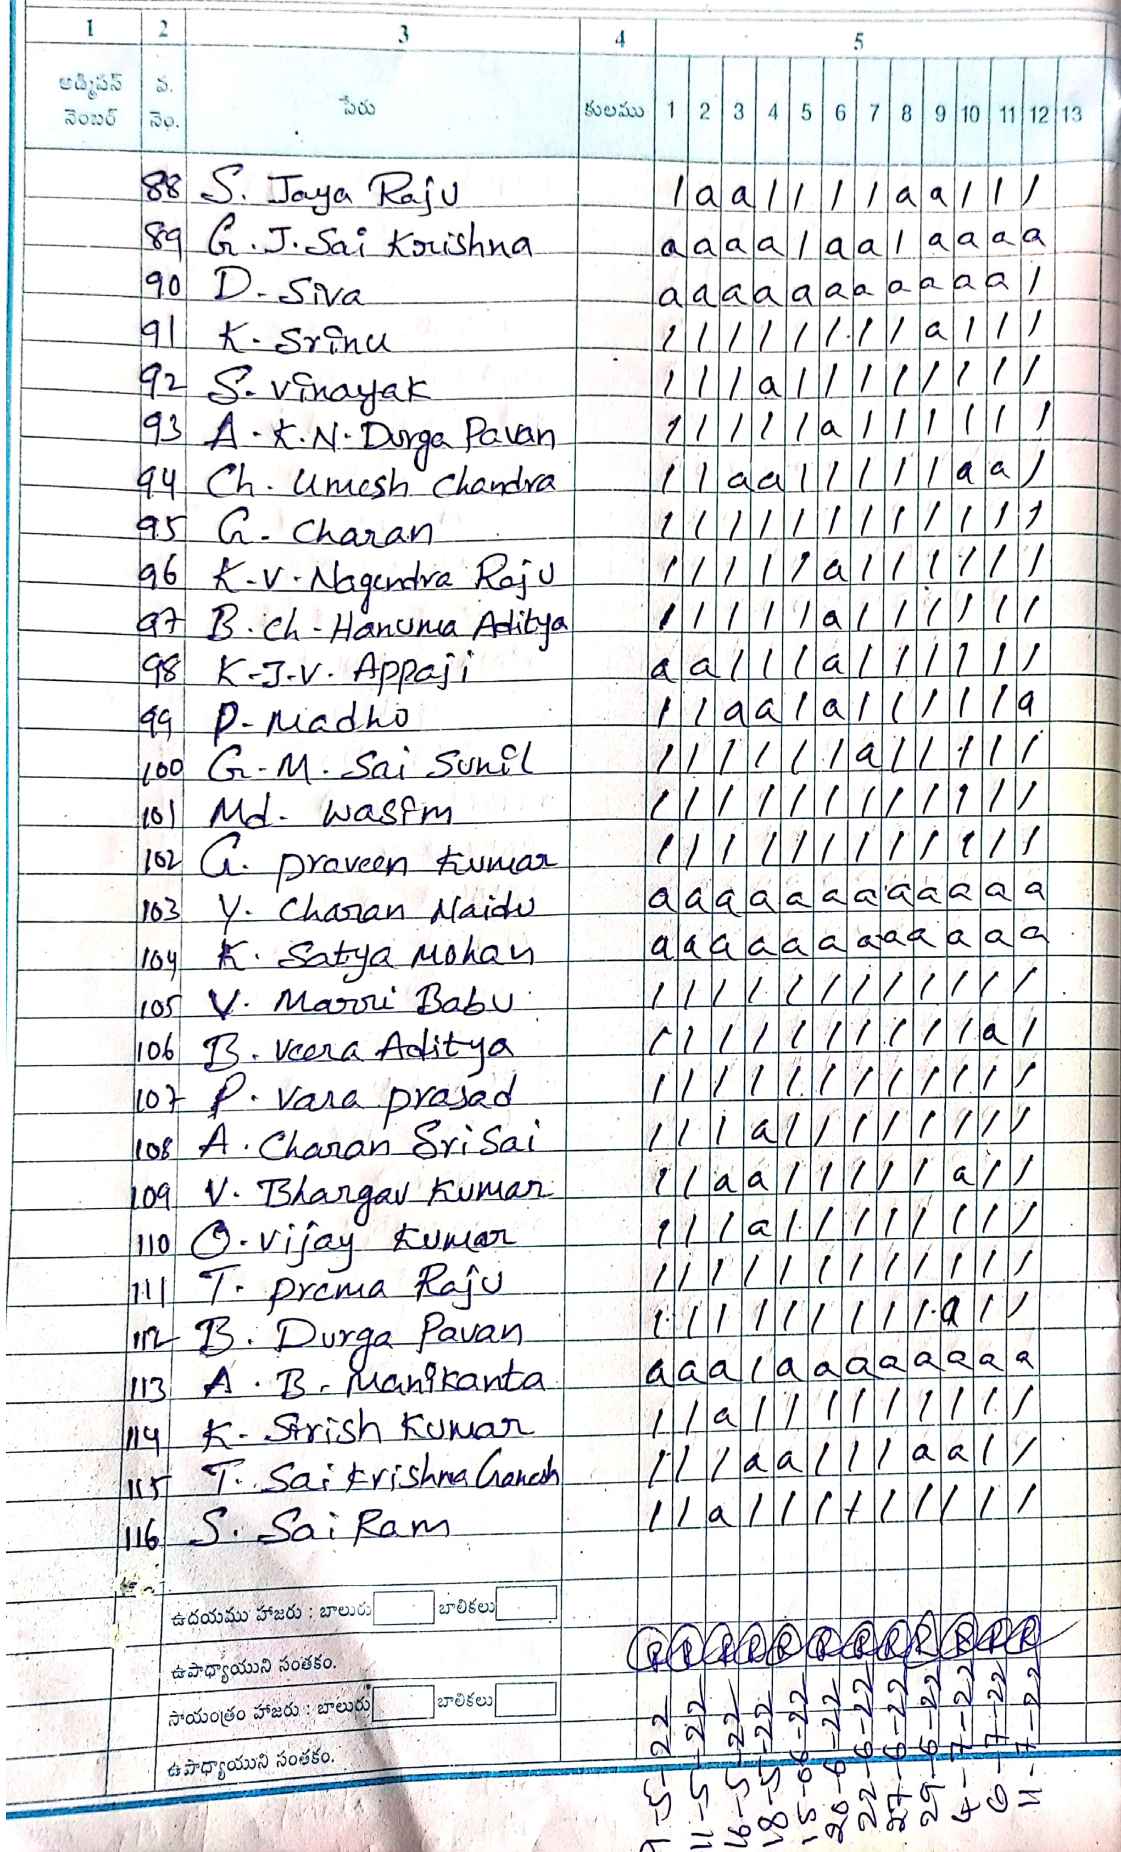 1 2 3 4 5
అడ్మిషన్ నెంబర్ వ. నెం. పేరు కులము 1 2 3 4 5 6 7 8 9 10 11 12 13
88 S. Jaya Raju / a a / / / / a a / / /
89 G. J. Sai Krishna a a a a / a a / a a a a
90 D. Siva a a a a a a a a a a a /
91 K. Srinu / / / / / / / / a / / /
92 S. Vinayak / / / a / / / / / / / /
93 A. K. N. Durga Pavan / / / / / a / / / / / /
94 Ch. Umesh Chandra / / a a / / / / / a a /
95 G. Charan / / / / / / / / / / / /
96 K. V. Nagendra Raju / / / / / a / / / / / /
97 B. Ch. Hanuma Aditya / / / / / a / / / / / /
98 K. J. V. Appaji a a / / / a / / / / / /
99 P. Madho / / a a / a / / / / / a
100 G. M. Sai Sunil / / / / / / a / / / / /
101 Md. Wasim / / / / / / / / / / / /
102 G. Praveen Kumar / / / / / / / / / / / /
103 Y. Charan Naidu a a a a a a a a a a a a
104 K. Satya Mohan a a a a a a a a a a a a
105 V. Marri Babu / / / / / / / / / / / /
106 B. Veera Aditya / / / / / / / / / / a /
107 P. Vara Prasad / / / / / / / / / / / /
108 A. Charan Sri Sai / / / a / / / / / / / /
109 V. Bhargav Kumar / / a a / / / / / a / /
110 O. Vijay Kumar / / / a / / / / / / / /
111 T. Prema Raju / / / / / / / / / / / /
112 B. Durga Pavan / / / / / / / / / a / /
113 A. B. Manikanta a a a / a a a a a a a a
114 K. Sirish Kumar / / a / / / / / / / / /
115 T. Sai Krishna Ganesh / / / a a / / / a a / /
116 S. Sai Ram / / a / / / / / / / / /
ఉదయము హాజరు : బాలురు బాలికలు
ఉపాధ్యాయుని సంతకం.
సాయంత్రం హాజరు : బాలురు బాలికలు
ఉపాధ్యాయుని సంతకం.
9-5-22
11-5-22
16-5-22
18-5-22
15-06-22
20-6-22
22-6-22
27-6-22
29-6-22
4-7-22
6-7-22
11-7-22